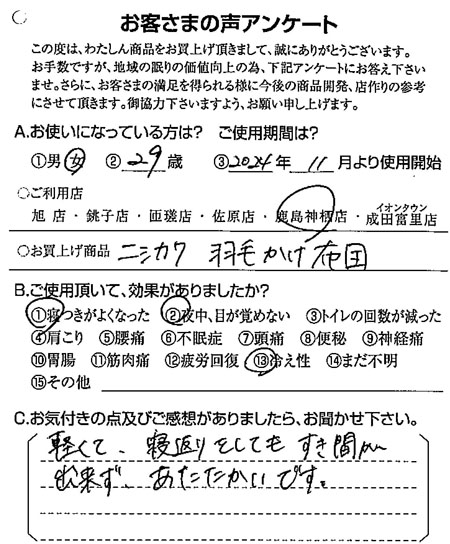 お客さまの声アンケート
この度は、わたしん商品をお買上げ頂きまして、誠にありがとうございます。
お手数ですが、地域の眠りの価値向上の為、下記アンケートにお答え下さい
ませ。さらに、お客さまの満足を得られる様に今後の商品開発、店作りの参考
にさせて頂きます。御協力下さいますよう、お願い申し上げます。
A.お使いになっている方は? ご使用期間は?
①男 女 ② 29 歳 ③ 2024 年 11 月より使用開始
○ご利用店
旭店・銚子店・匝瑳店・佐原店・鹿島神栖店・イオンタウン成田富里店
○お買上げ商品 ニシカワ 羽毛かけ布団
B.ご使用頂いて、効果がありましたか?
①寝つきがよくなった ②夜中、目が覚めない ③トイレの回数が減った
④肩こり ⑤腰痛 ⑥不眠症 ⑦頭痛 ⑧便秘 ⑨神経痛
⑩胃腸 ⑪筋肉痛 ⑫疲労回復 ⑬冷え性 ⑭まだ不明
⑮その他
C.お気付きの点及びご感想がありましたら、お聞かせ下さい。
軽くて、寝返りをしてもすき間が
出来ず、あたたかいです。